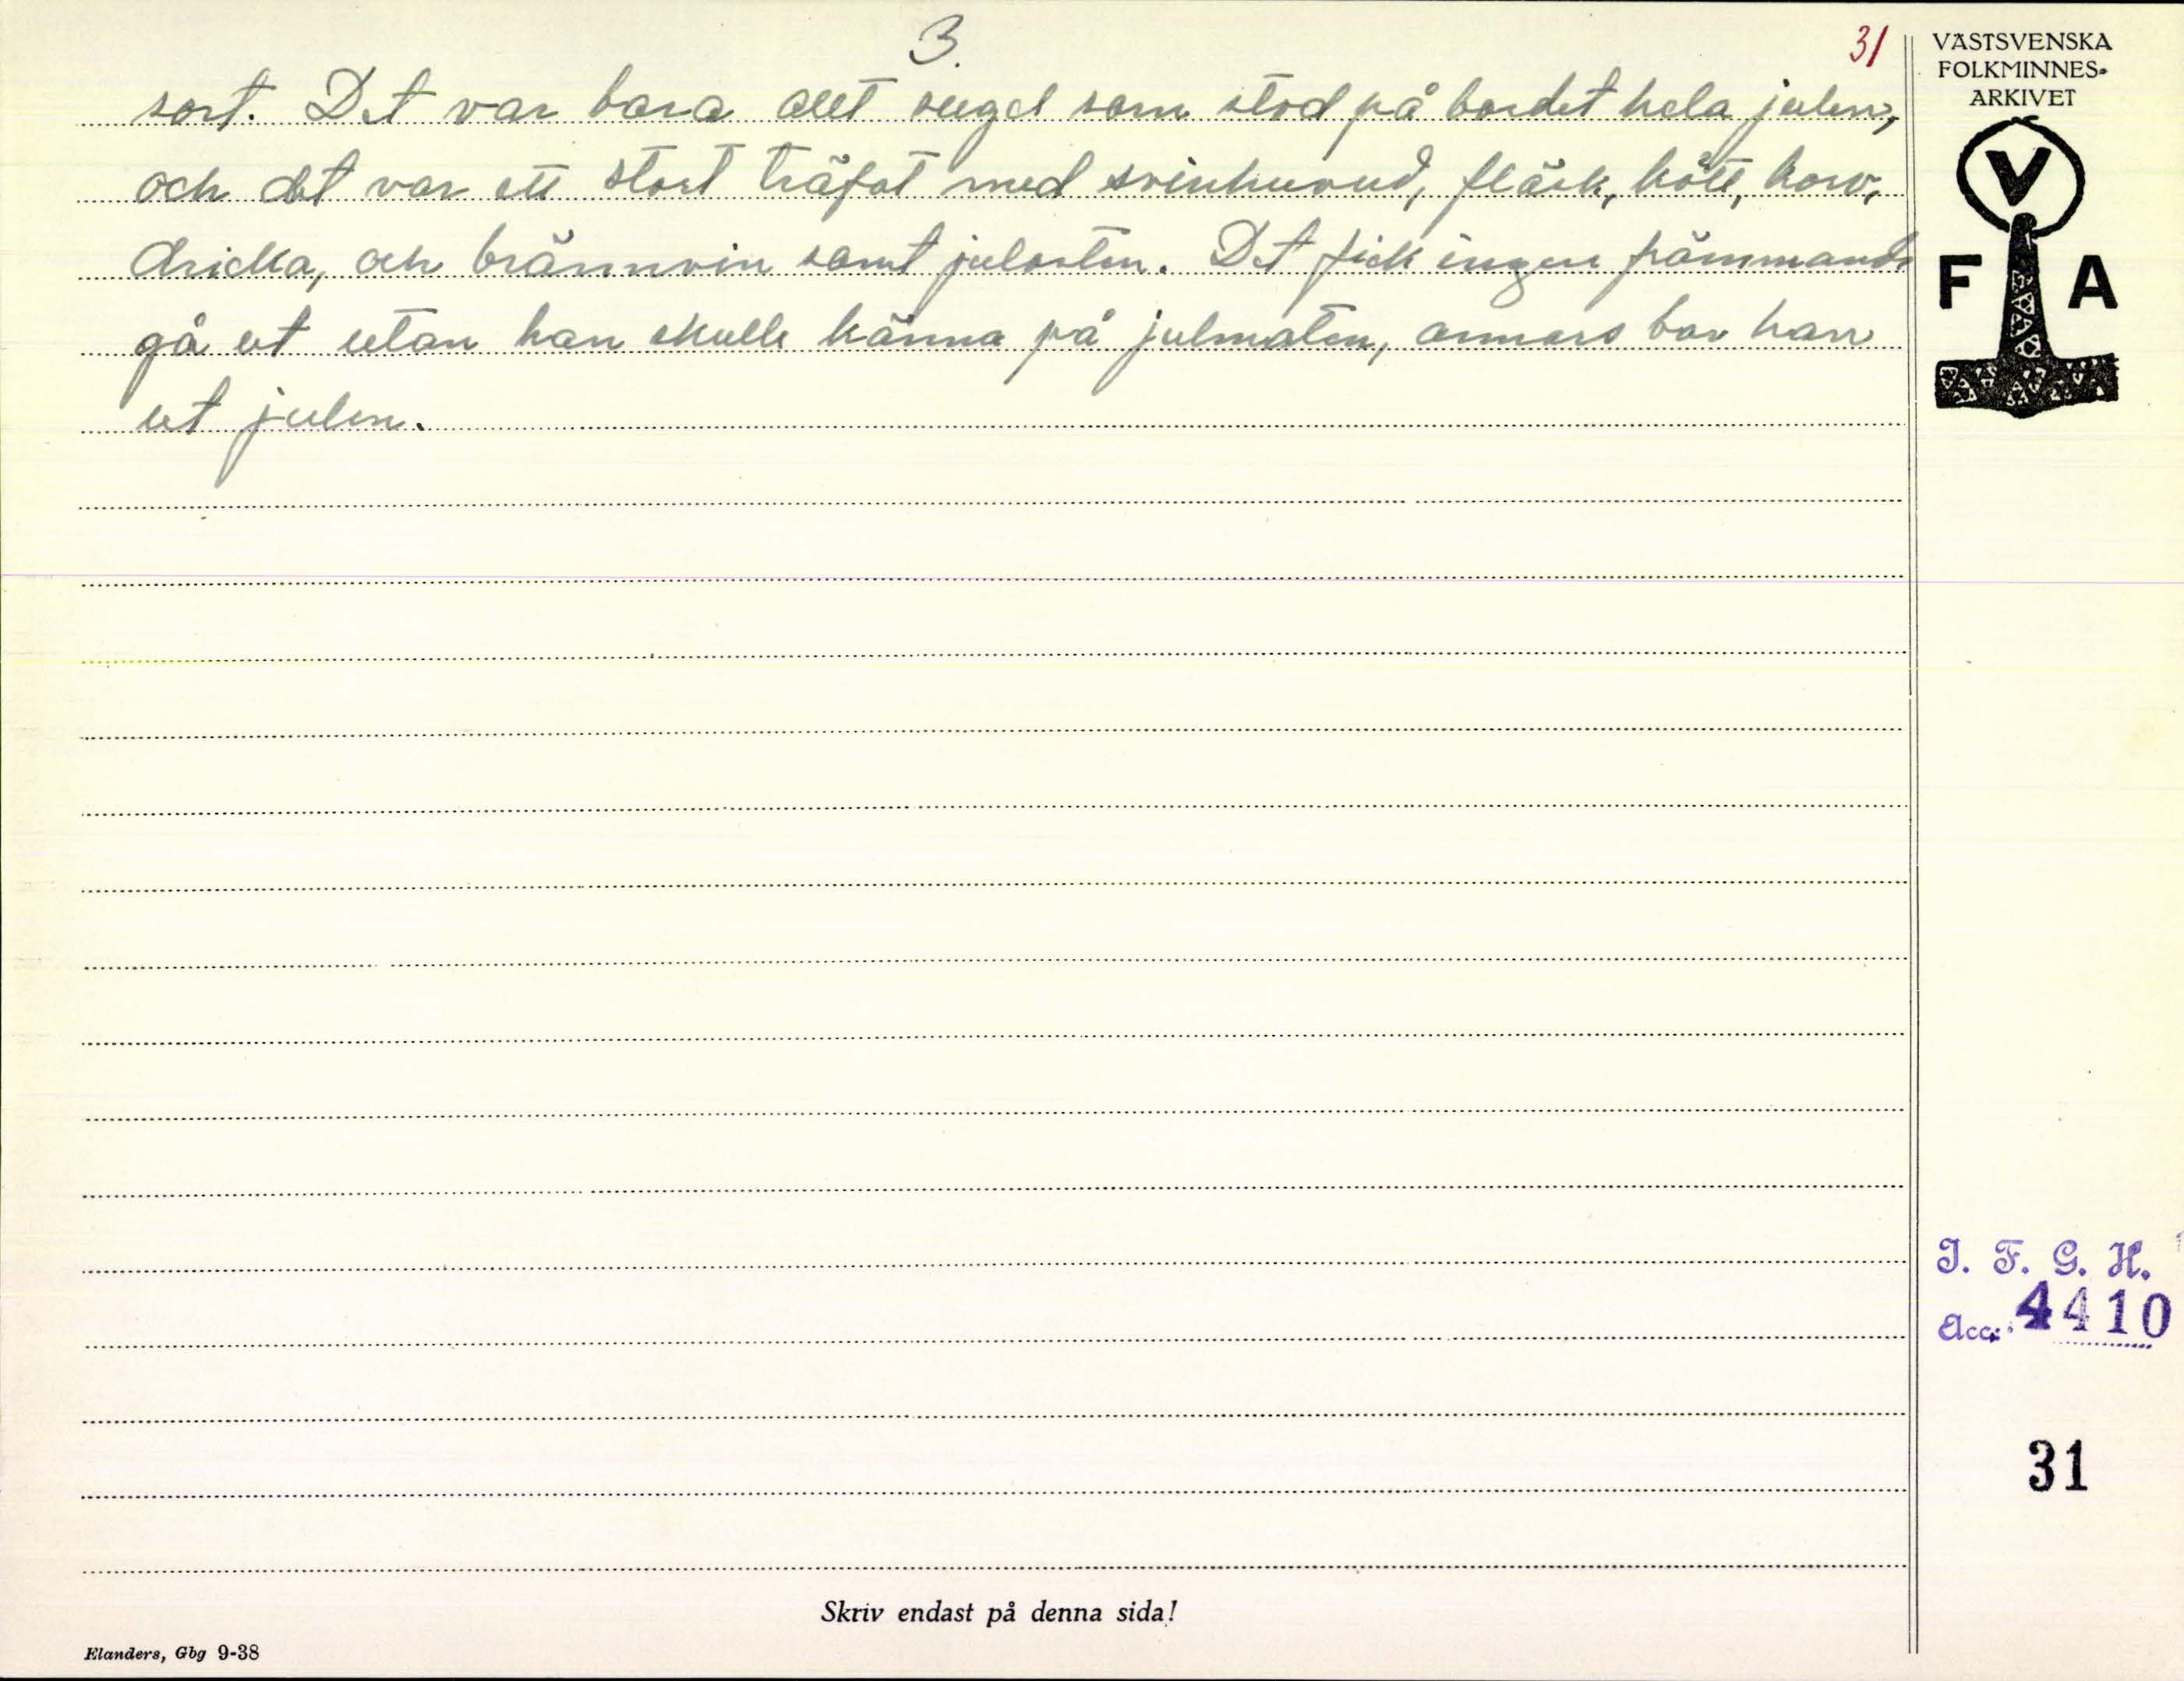 3.
31
sort. Det var bara allt sugel som stod på bordet hela julen,
och det var ett stort träfat med svinhuvud, fläsk, kött, korv,
dricka, och brännvin samt julosten. Det fick ingen främmande
gå ut utan han skulle känna på julmaten, annars bar han
ut julen.
VÄSTSVENSKA
FOLKMINNES-
ARKIVET
V
F A
I. F. G. H.
Acc. 4410
31
Skriv endast på denna sida!
Elanders, Gbg 9-38